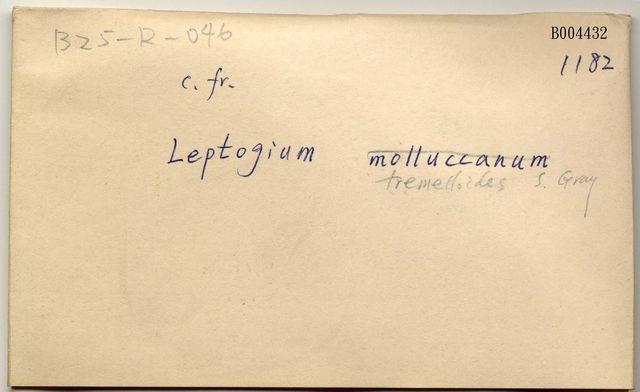 B25-R-046
B004432
1182
c. fr.
Leptogium molluccanum
tremelloides S. Gray